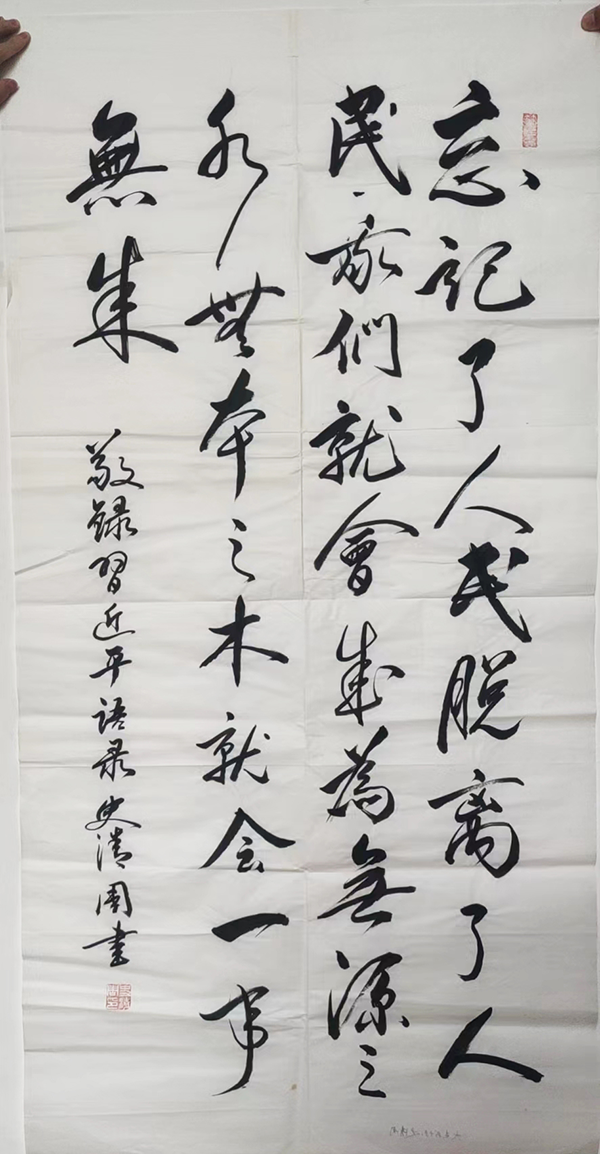 忘记了人民脱离了人
民、我们就会成为無源之
水無本之木就会一事
無成
敬録習近平语录 史清周書